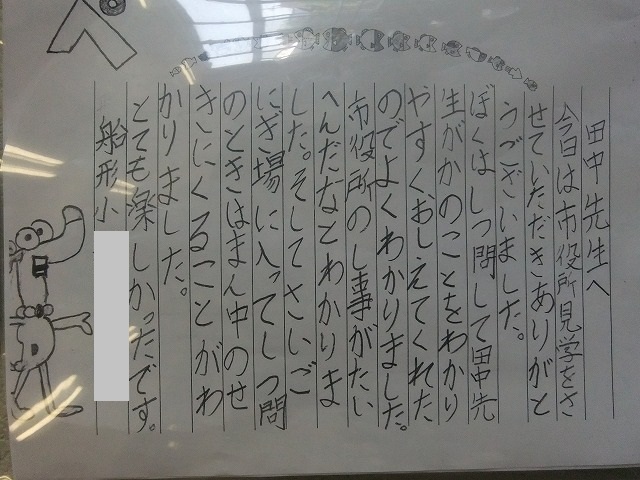 田中先生へ
今日は市役所見学をさ
せていただきありがと
うございました。
ぼくはしつ問して田中先
生がかのことをわかり
やすくおしえてくれた
のでよくわかりました。
市役所のし事がたい
へんだなとわかりま
した。そしてさいご
にぎ場に入ってしつ問
のときはまん中のせ
きにくることがわ
かりました。
とても楽しかったです。
船形小
ペ